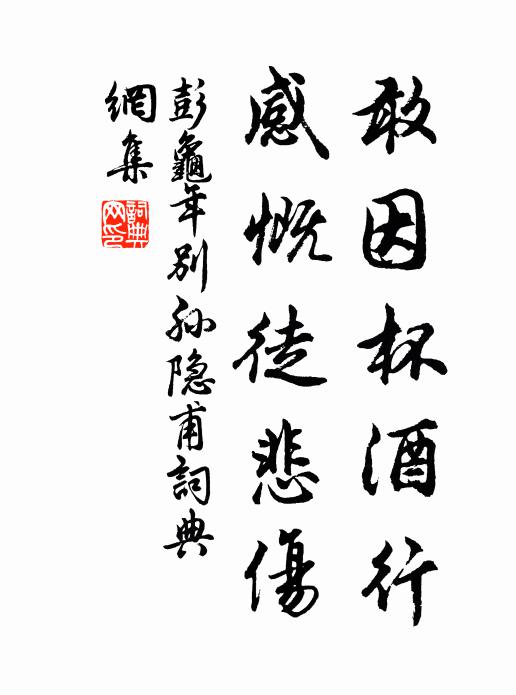 敢因杯酒行
感慨徒悲傷
彭龜年別孙隐甫詞典
網集
詞典网印